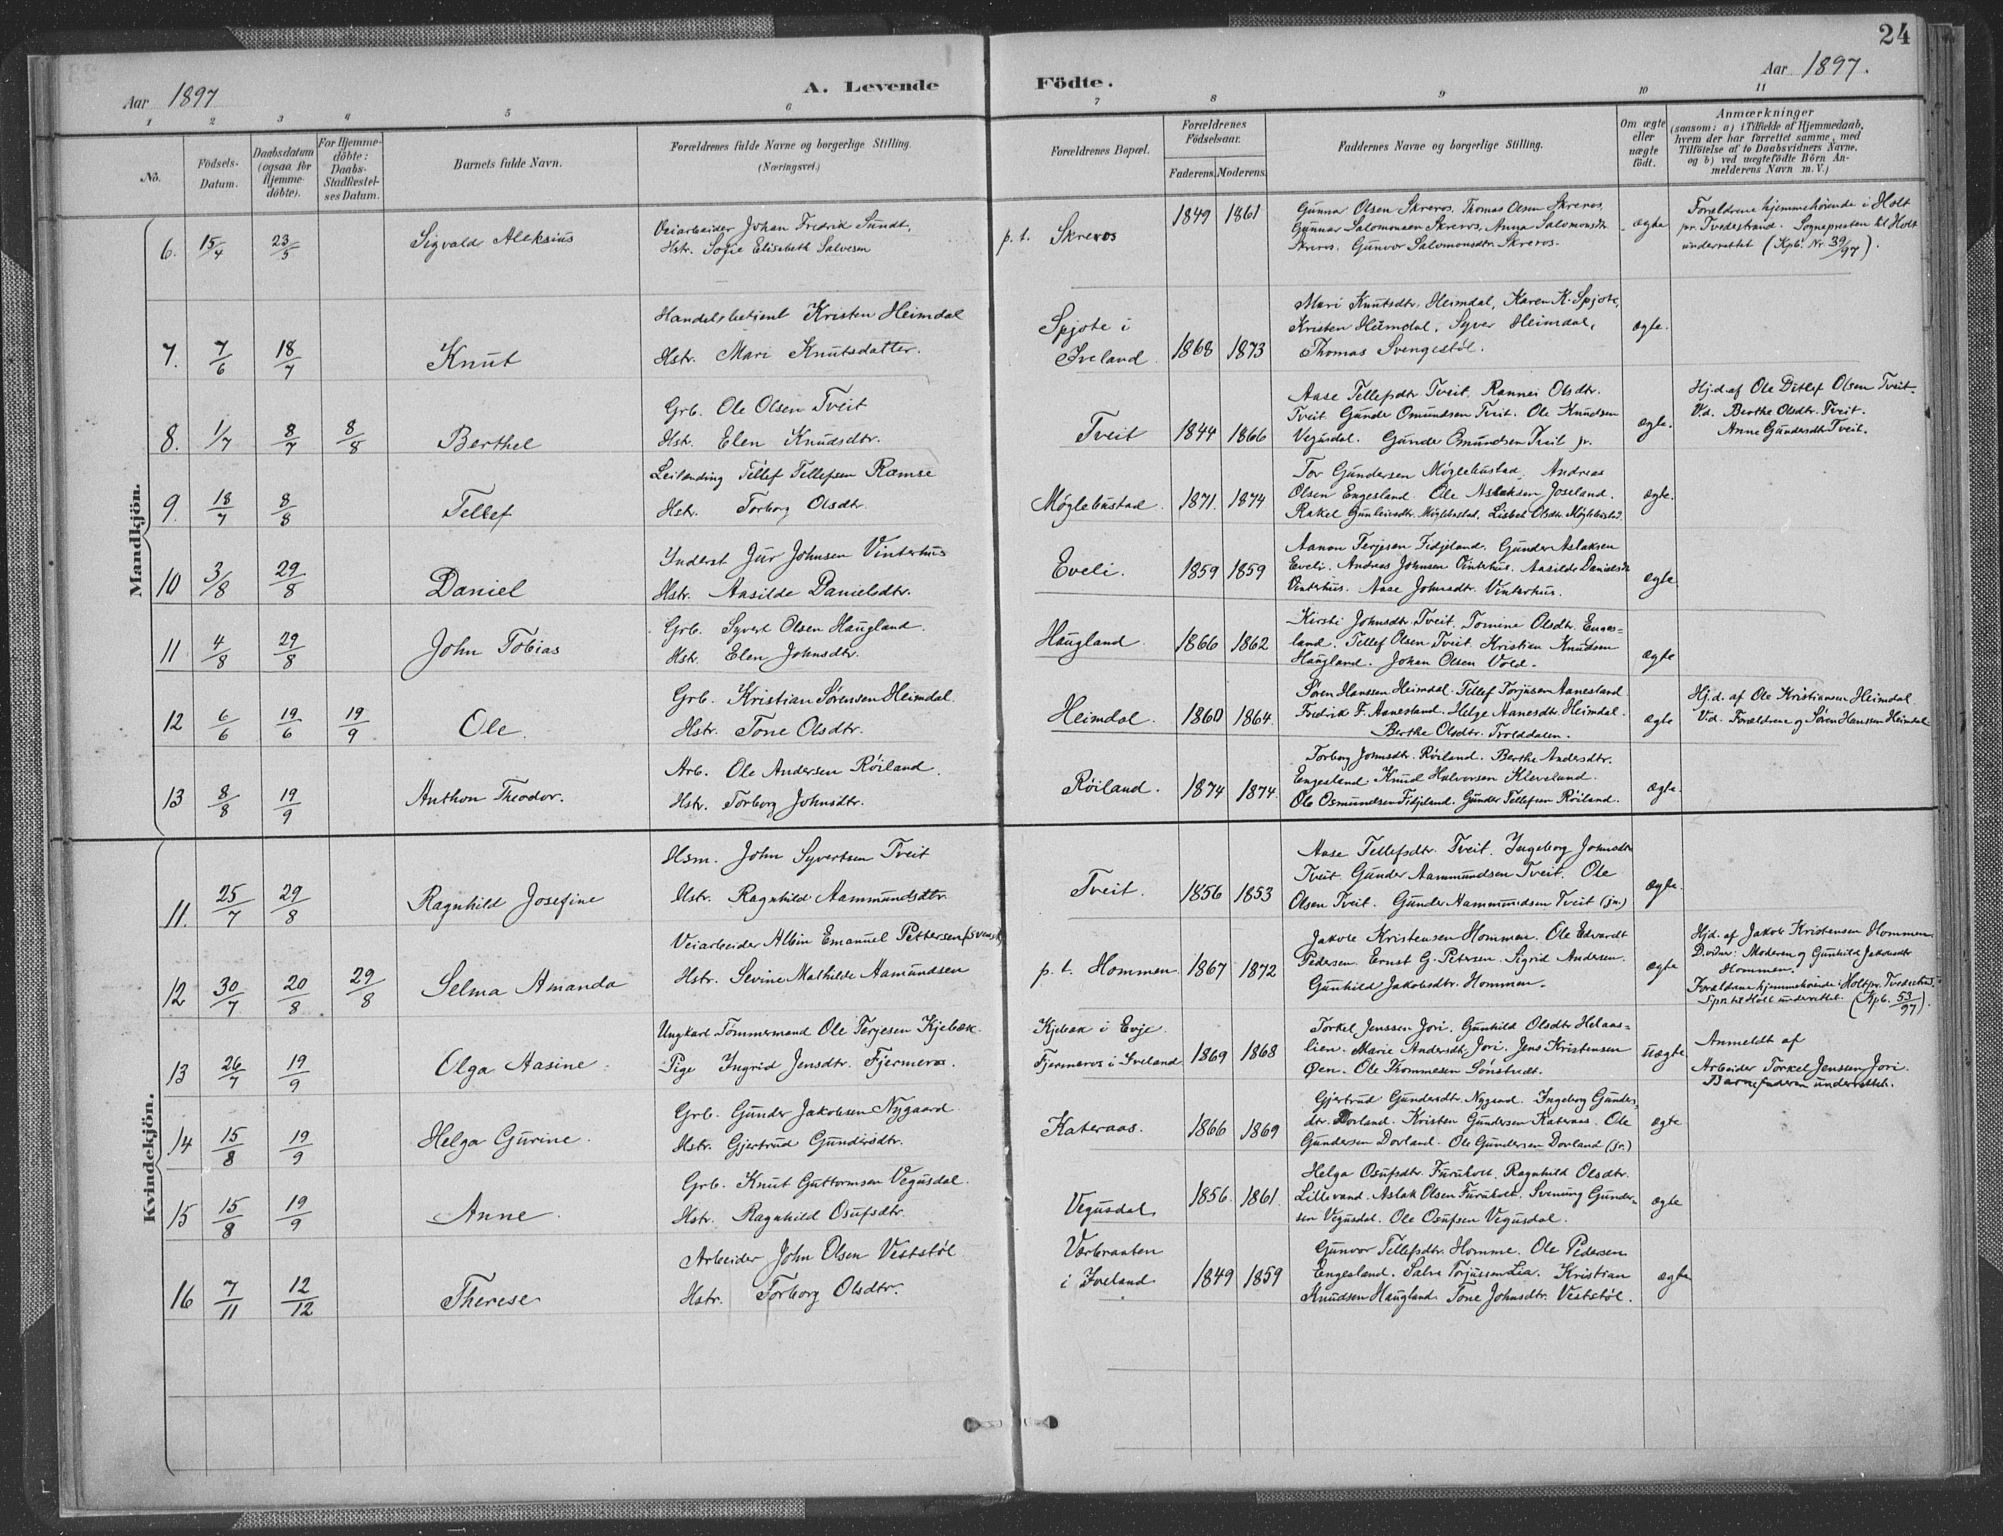 24
Aar 1897
A. Levende
Födte.
Aar 1897.
1 2 3 4 5 6 7 8 9 10 11
No.
Födsels-Datum.
Daabsdatum (ogsaa for Hjemme-döbte).
For Hjemme-döbte: Daabs-Stadfæstel-ses Datum.
Barnets fulde Navn.
Forældrenes fulde Navne og borgerlige Stilling.
(Næringsvei.)
Forældrenes Bopæl.
Forældrenes Födselsaar.
Faderens. Moderens.
Faddernes Navne og borgerlige Stilling.
Om ægte eller uægte födt.
Anmærkninger
(saasom: a) i Tilfælde af Hjemmedaab,
hvem der har forrettet samme, med
Tilföielse af to Daabsvidners Navne,
og b) ved uægtefödte Börn An-
melderens Navn m. V.)
Mandkjön.
6. 15/4 23/5 Sigvald Aleksius
Veiarbeider Johan Fredrik Sundt,
Hstr. Sofie Elisabeth Salvesen
p. t. Skreros 1849 1861
Gunnar Olsen Skreros, Thomas Olsen Skreros,
Gunnar Salomonsen Skreros, Anna Salomonsdtr.
Skreros. Gunvor Salomonsdtr. Skreros.
ægte
Forældrene hjemmehörende i Holt
pr. Tvedestrand. Sognepresten til Holt
underrettet (Kpb. Nr. 39/97).
7. 7/6 18/7 Knut
Handelsbetjent Kristen Heimdal
Hstr. Mari Knutsdatter.
Spjote i
Iveland 1868 1873
Mari Knutsdtr. Heimdal, Karen K. Spjote,
Kristen Heimdal, Syver Heimdal,
Thomas Svengestøl.
ægte.
8. 1/7 8/7 8/8 Berthel
Grb. Ole Olsen Tveit
Hstr. Elen Knudsdtr.
Tveit 1844 1866
Aase Tellefsdtr Tveit. Rannei Olsdtr.
Tveit Gunder Omundsen Tveit. Ole Knudsen
Vegusdal. Gunder Omundsen Tveit jr.
ægte.
Hj.d. af Ole Ditlef Olsen Tveit.
Vd. Berthe Olsdtr. Tveit.
Anne Gundersdtr Tveit.
9. 18/7 8/8 Tellef
Leilending Tellef Tellefsen Ramse
Hstr. Torborg Olsdtr.
Møglebustad 1871. 1874
Tor Gundersen Møglebustad, Andreas
Olsen Engesland. Ole Aslaksen Joseland.
Rakel Gunleivsdtr. Møglebustad, Lisbet Olsdtr. Møglebustad.
ægte.
10 3/8 29/8 Daniel
Inderst Jur Johnsen Vinterhus
Hstr. Aasilde Danielsdtr.
Eveli. 1859 1859
Aanon Terjesen Fidjeland. Gunder Aslaksen
Eveli. Andreas Johnsen Vinterhus. Aasilde Danielsdtr.
Vinterhus. Aase Johnsdtr. Vinterhus.
ægte
11 4/8 29/8 John Tobias
Grb. Syvert Olsen Haugland.
Hstr. Elen Johnsdtr.
Haugland 1866 1862
Kirsti Johnsdtr. Tveit. Tomine Olsdtr. Enges-
land. Tellef Olsen Tveit. Kristian Knudsen
Haugland. Johan Olsen Vold.
ægte
12 6/6 19/6 19/9 Ole.
Grb. Kristian Sørensen Heimdal.
Hstr. Tone Olsdtr.
Heimdal. 1860 1864.
Søren Hanssen Heimdal. Tellef Torjusen Aanesland
Fredrik F. Aanesland. Helge Aanesdtr. Heimdal.
Berthe Olsdtr. Trolddalen.
ægte
Hj.d. af Ole Kristiansen Heimdal
Vd. Forældrene og Søren Hansen Heimdal
13 8/8 19/9 Anthon Theodor.
Arb. Ole Andersen Røiland.
Hstr. Torborg Johnsdtr.
Røiland. 1874 1874.
Torborg Johnsdtr. Røiland. Berthe Andersdtr.
Engesland. Knud Halvorsen Kleveland.
Ole Osmundsen Fidjeland. Gunder Tellefsen Røiland.
ægte.
Kvindekjön.
11. 25/7 29/8 Ragnhild Josefine
Hsm. John Syvertsen Tveit
Hstr. Ragnhild Aammundsdtr.
Tveit. 1856 1853
Aase Tellefsdtr. Tveit. Ingeborg Johnsdtr
Tveit. Gunder Aammundsen Tveit. Ole
Olsen Tveit. Gunder Aammundsen Tveit (jr.)
ægte.
12 30/7 20/8 29/8 Selma Amanda
Veiarbeider Albin Emanuel Pettersen (svensk)
Hstr. Sevine Mathilde Aamundsen
p. t. Hommen 1867 1872
Jakob Kristensen Hommen. Ole Edvardt
Pedersen. Ernst G. Petersen. Sigrid Andersen.
Gunhild Jakobsdtr. Hommen.
ægte
Hj.d. af Jakob Kristensen Hommen
D.vidner: Moderen og Gunhild Jakobsdtr
Hommen.
Forældrene hjemmehörende i Holt pr. Tvedestrd.
Spr. til Holt underrettet. (Kpb. 53/97).
13 26/7 19/9 Olga Aasine
Ungkarl Tømmermand Ole Terjesen Kjebæk.
Pige Ingrid Jensdtr. Fjermeros.
Kjebæk i Evje.
Fjermeros i Iveland 1869 1868
Torkel Jenssen Jori. Gunhild Olsdtr Helaas-
lien. Marie Andersdtr. Jori. Jens Kristensen
Øen. Ole Thommesen Sønstredt.
uægte
Anmeldt af
Arbeider Torkel Jenssen Jori.
Barnefaderen underrettet.
14 15/8 19/9 Helga Gurine.
Grb. Gunder Jakobsen Nygaard
Hstr. Gjertrud Gundersdtr.
Kateraas. 1866 1869
Gjertrud Gundersdtr. Nygaard. Ingeborg Gunders-
dtr. Dovland. Kristen Gundersen Kateraas. Ole
Gundersen Dovland. Ole Gundersen Dovland (jr.)
ægte
15 15/8 19/9 Anne.
Grb. Knut Guttormsen Vegusdal.
Hstr. Ragnhild Osufsdtr.
Vegusdal 1856. 1861.
Helga Osufsdtr. Furuholt. Ragnhild Olsdtr.
Lillevand. Aslak Olsen Furuholt. Svenning Gunder-
sen Vegusdal. Ole Osufsen Vegusdal.
ægte
16 7/11 12/12 Therese
Arbeider John Olsen Veststøl
Hstr. Torborg Olsdtr.
Vorbraaten
i Iveland 1849 1859
Gunvor Tellefsdtr. Homme. Ole Pedersen
Engesland. Salve Torjussen Lia. Kristian
Knudsen Haugland. Tone Johnsdtr. Veststøl.
ægte